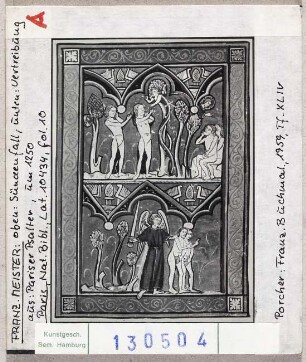 FRANZ. MEISTER: oben: Sündenfall, unten: Vertreibung
aus: Pariser Psalter, um 1250
Paris, Nat. Bibl., Lat. 10434, fol. 10
A
Porcher: Franz. Buchmal., 1959, Tf. XLIV
Kunstgesch.
Sem. Hamburg
130504